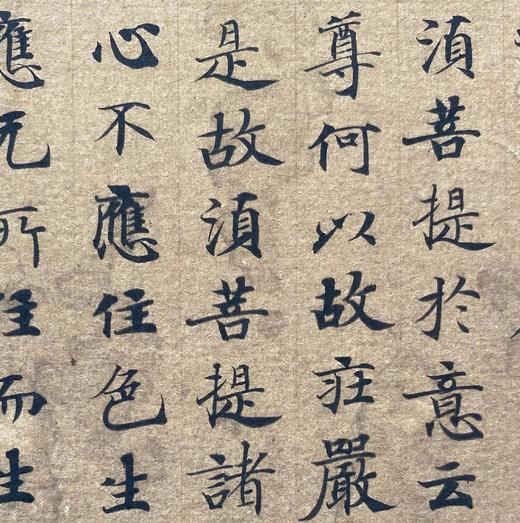 湏菩提於意云
尊何以故庄嚴
是故湏菩提諸
心不應住色生
應无所住而生